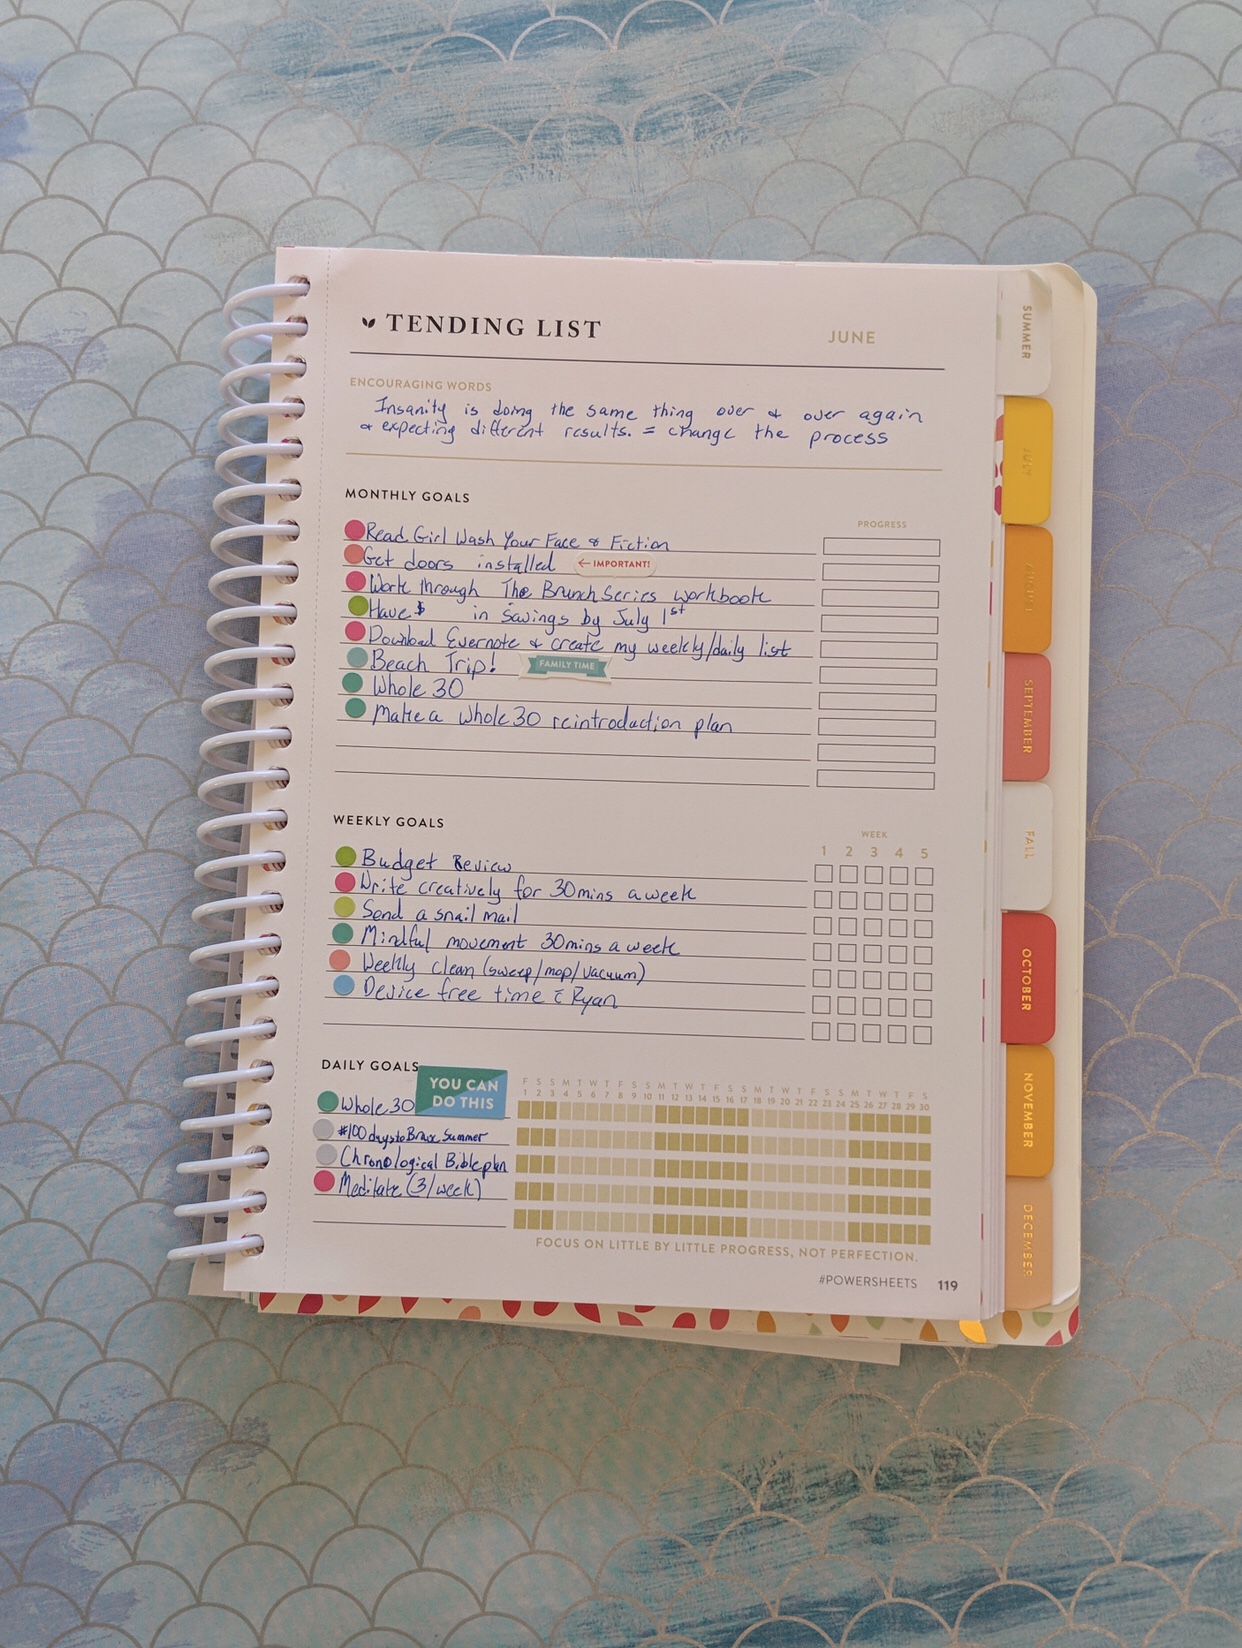 TENDING LIST
JUNE
ENCOURAGING WORDS
Insanity is doing the same thing over & over again
& expecting different results. = change the process
MONTHLY GOALS
PROGRESS
Read Girl Wash Your Face & Fiction
Get doors installed ← IMPORTANT!
Work through The Brunch Series workbook
Have $ in Savings by July 1st
Download Evernote & create my weekly/daily list
Beach Trip! FAMILY TIME
Whole 30
Make a Whole 30 reintroduction plan
WEEKLY GOALS
WEEK
1 2 3 4 5
Budget Review
Write creatively for 30mins a week
Send a snail mail
Mindful movement 30mins a week
Weekly clean (sweep/mop/vacuum)
Device free time c̄ Ryan
DAILY GOALS
YOU CAN
DO THIS
F S S M T W T F S S M T W T F S S M T W T F S S M T W T F S
1 2 3 4 5 6 7 8 9 10 11 12 13 14 15 16 17 18 19 20 21 22 23 24 25 26 27 28 29 30
Whole 30
#100daystoBrave Summer
Chronological Bible plan
Meditate (3/week)
FOCUS ON LITTLE BY LITTLE PROGRESS, NOT PERFECTION.
#POWERSHEETS 119
SUMMER
JULY
AUGUST
SEPTEMBER
FALL
OCTOBER
NOVEMBER
DECEMBER